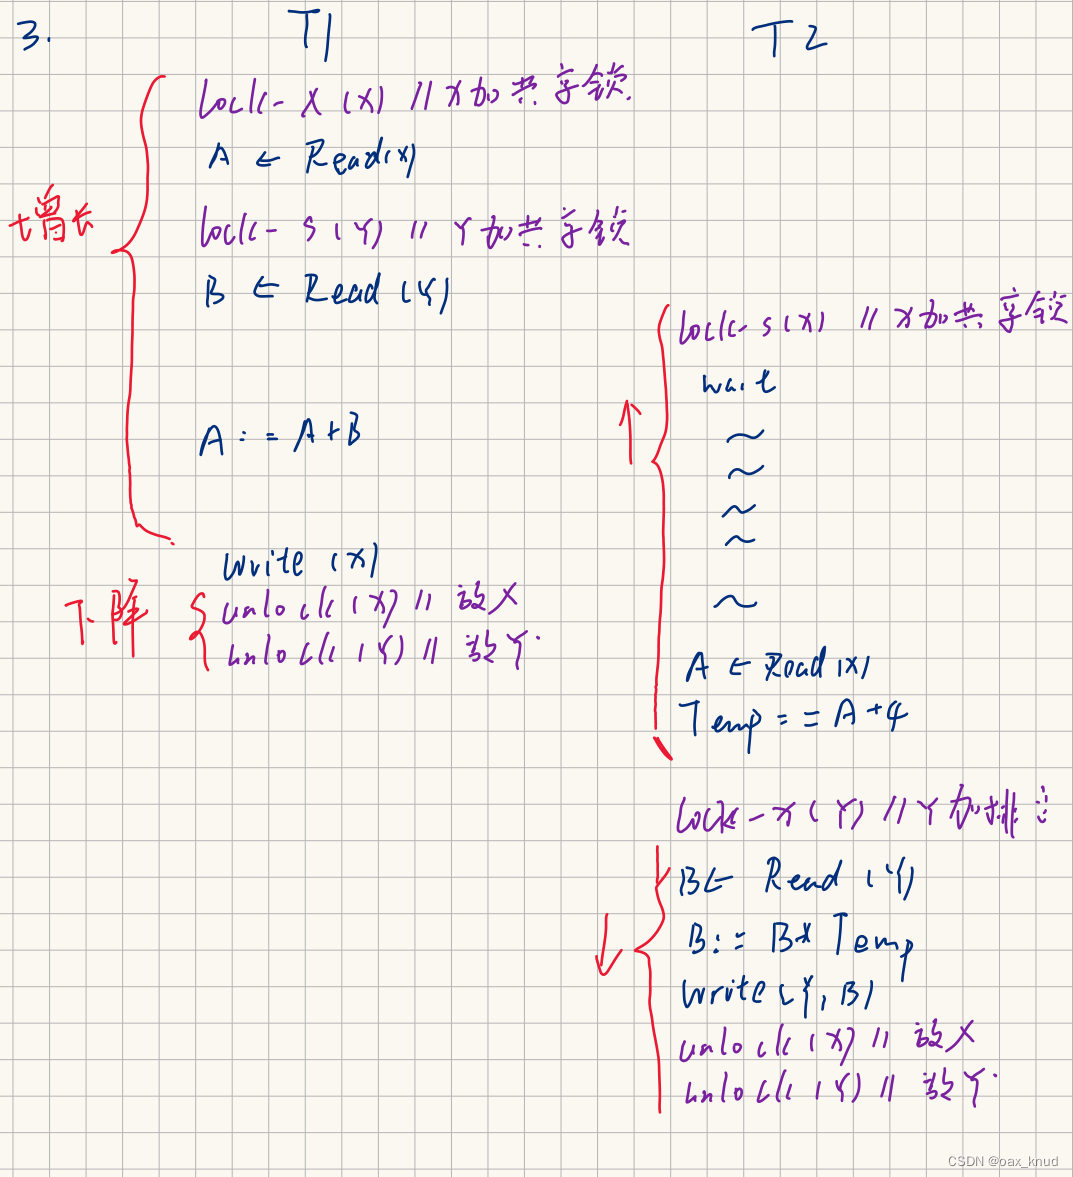 3.
T1
T2
lock-X(X) // X加共享锁.
A ← Read(X)
增长
lock-S(Y) // Y加共享锁
B ← Read(Y)
lock-S(X) // X加共享锁
wait
~
A := A+B
~
~
~
write(X)
下降
unlock(X) // 放X
~
unlock(Y) // 放Y.
A ← Read(X)
Temp == A+4
lock-X(Y) // Y加排
B ← Read(Y)
B := B* Temp
write(Y, B)
unlock(X) // 放X
unlock(Y) // 放Y.
CSDN @oax_knud